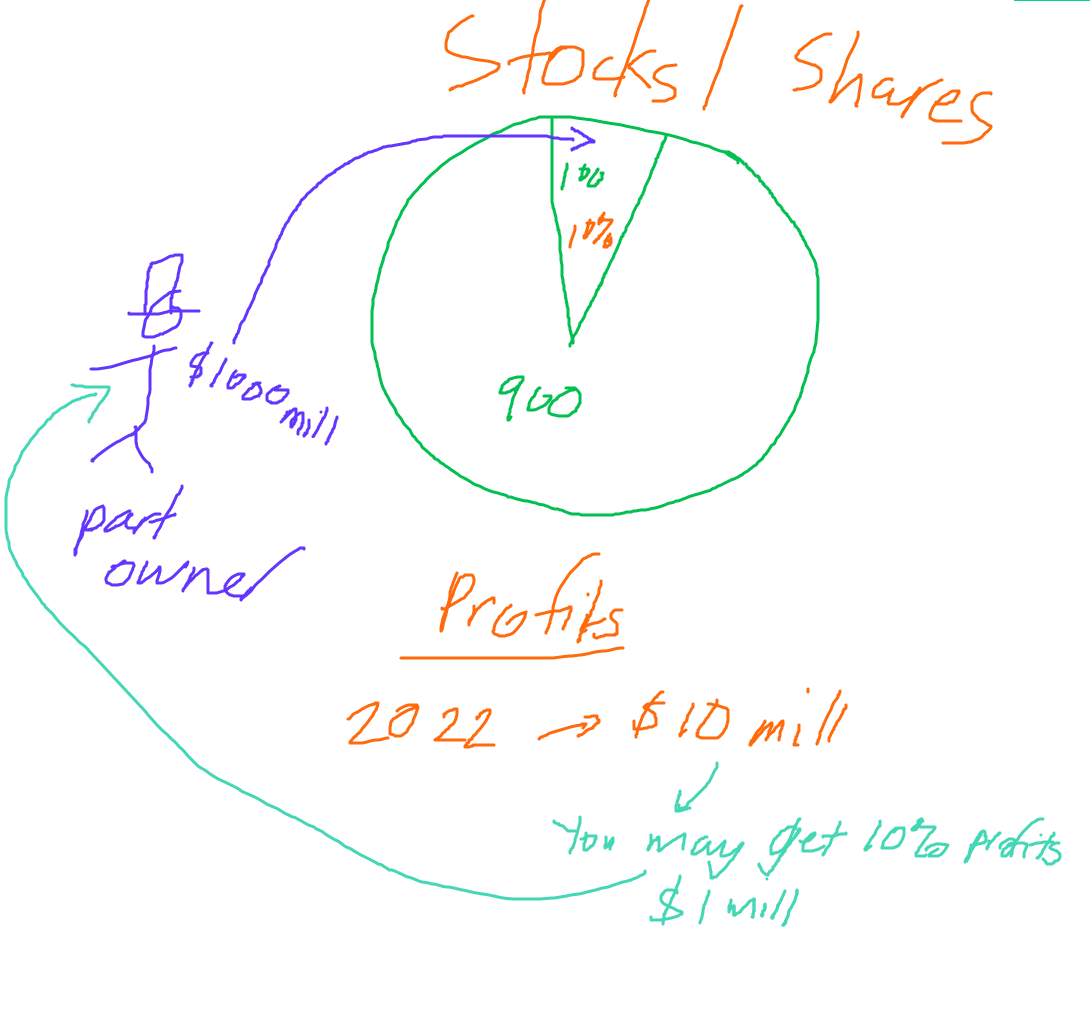 Stocks/ Shares
100
10%
$1000 mill
900
part
owner
Profits
2022 → $10 mill
You may get 10% profits
$1 mill